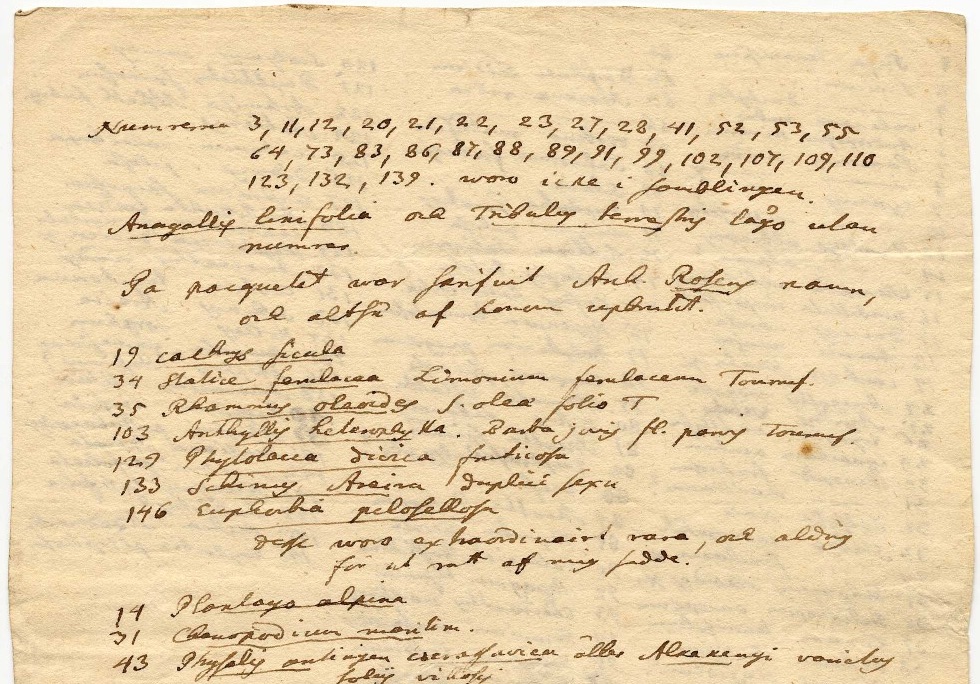 Numrerna 3, 11, 12, 20, 21, 22, 23, 27, 28, 41, 52, 53, 55
64, 73, 83, 86, 87, 88, 89, 91, 99, 102, 107, 109, 110
123, 132, 139. woro icke i samblingen.
Anagallis linifolia och Tribulus terrestris lågo utan
numrer.
På pacquetet war Ant. Rosers namn,
och altså af honom upbrutit.
19 cachrys sicula
34 Statice ferulacea Limonium ferulaceum Tournef.
35 Rhamnus oleoides S. olea folio T
103 Anthyllis heterophylla. Barba jovis fl. parvis Tournef.
129 Phytolacca dioica fruticosa
133 Schinus Areira duplici sexu
146 Euphorbia pilosellosa
desse woro extraordinairt rara, och aldrig
förut rätt af mig sedde.
14 Plantago alpina
31 Chenopodium maritim.
43 Physalis eller Alkekengi varietas
foliis villosis